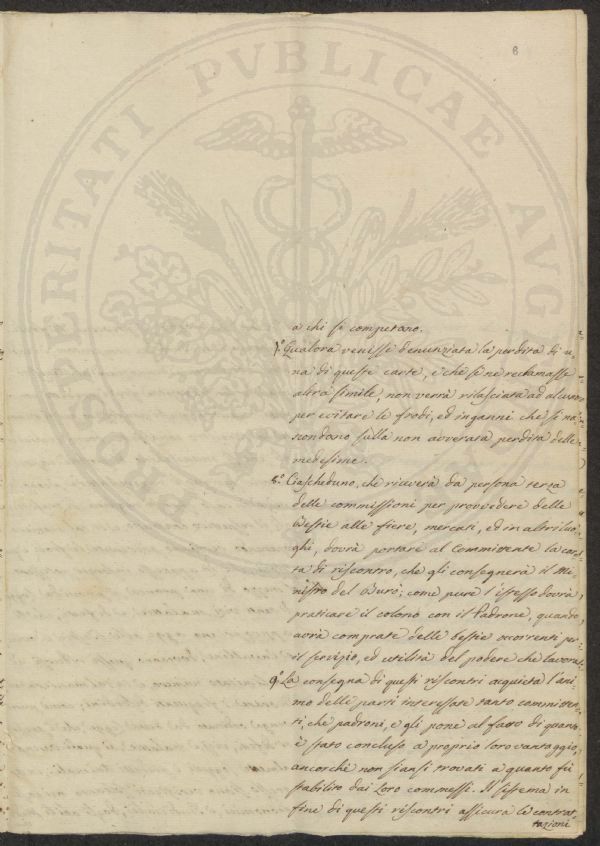 6
PROSPERITATI PVBLICAE AVGENDAE
a chi si competano.
7.° Qualora venisse denunziata la perdita di u-
na di queste carte, e che se ne reclamasse
altra simile, non verrà rilasciata ad alcuno
per evitare le frodi, ed inganni che si na-
scondono sulla non avverata perdita delle
medesime.
8.° Ciascheduno, che riceverà da persona terza
delle commissioni per provvedere delle
Bestie alle fiere, mercati, ed in altri luo-
ghi, dovrà portare al Commitente la car-
ta di riscontro, che gli consegnerà il Mi-
nistro del Burò; come pure l'istesso dovrà
praticare il colono con il Padrone, quando
avrà comprate delle bestie occorrenti per
il servizio, ed utilità del podere che lavora.
9.° La consegna di questi riscontri acquieta l'ani-
mo delle parti interessate tanto committen-
ti, che padroni, e gli pone al fatto di quanto
è stato concluso a proprio loro vantaggio,
ancorchè non siansi trovati a quanto fù
stabilito dai Loro commessi. Il sistema in
fine di questi riscontri assicura le contrat-
tazioni